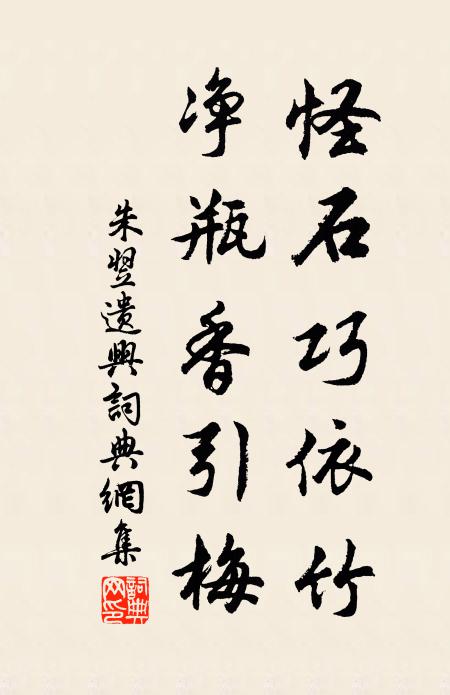 怪石巧依竹
净瓶香引梅
朱翌遺興詞典網集
詞典網印